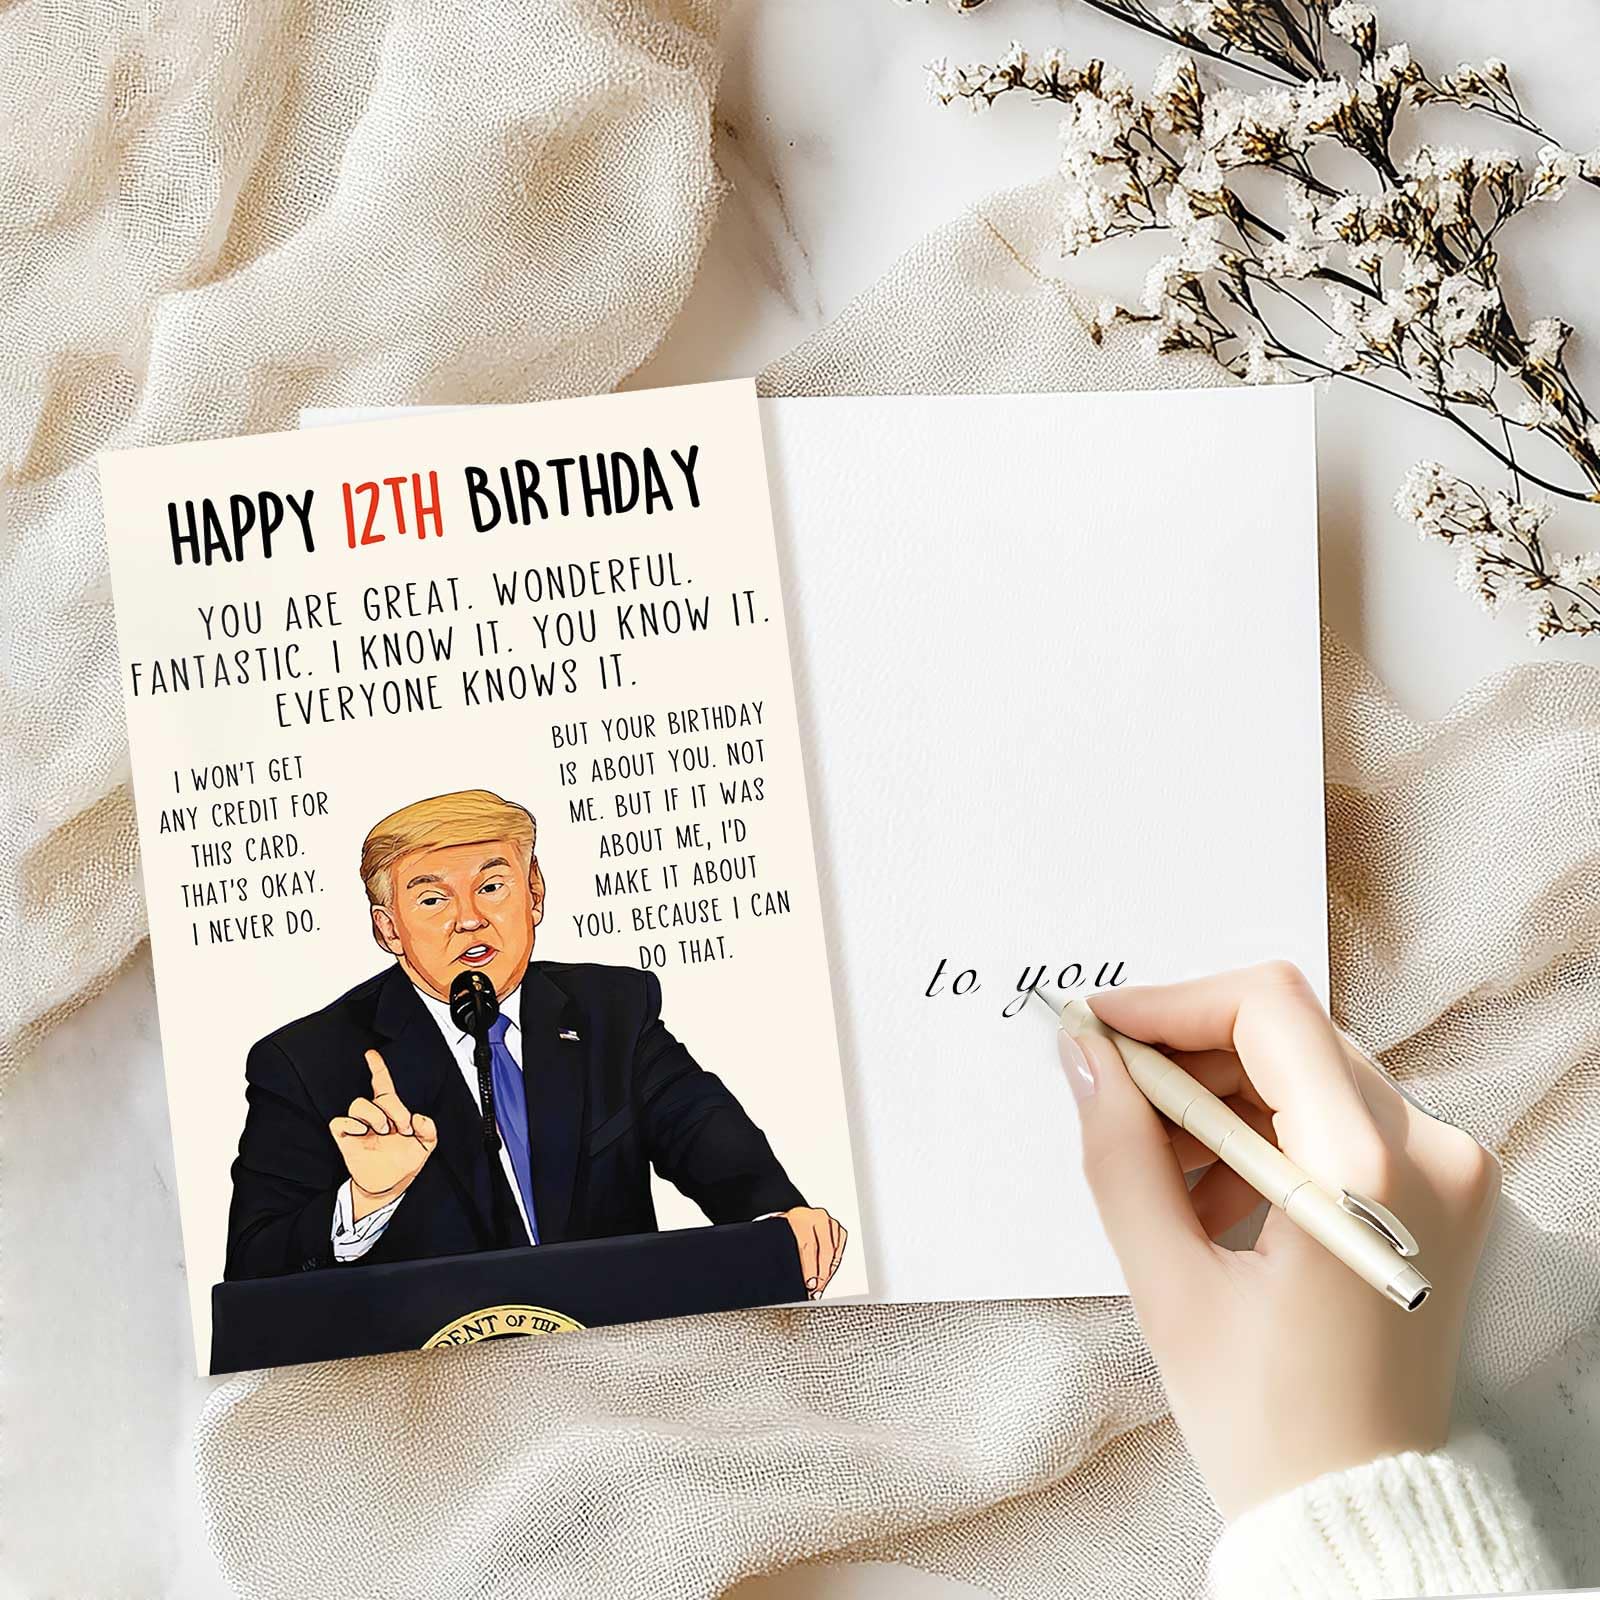 HAPPY 12TH BIRTHDAY
YOU ARE GREAT. WONDERFUL.
FANTASTIC. I KNOW IT. YOU KNOW IT.
EVERYONE KNOWS IT.
I WON'T GET
ANY CREDIT FOR
THIS CARD.
THAT'S OKAY.
I NEVER DO.
BUT YOUR BIRTHDAY
IS ABOUT YOU. NOT
ME. BUT IF IT WAS
ABOUT ME, I'D
MAKE IT ABOUT
YOU. BECAUSE I CAN
DO THAT.
DENT OF THE
to you